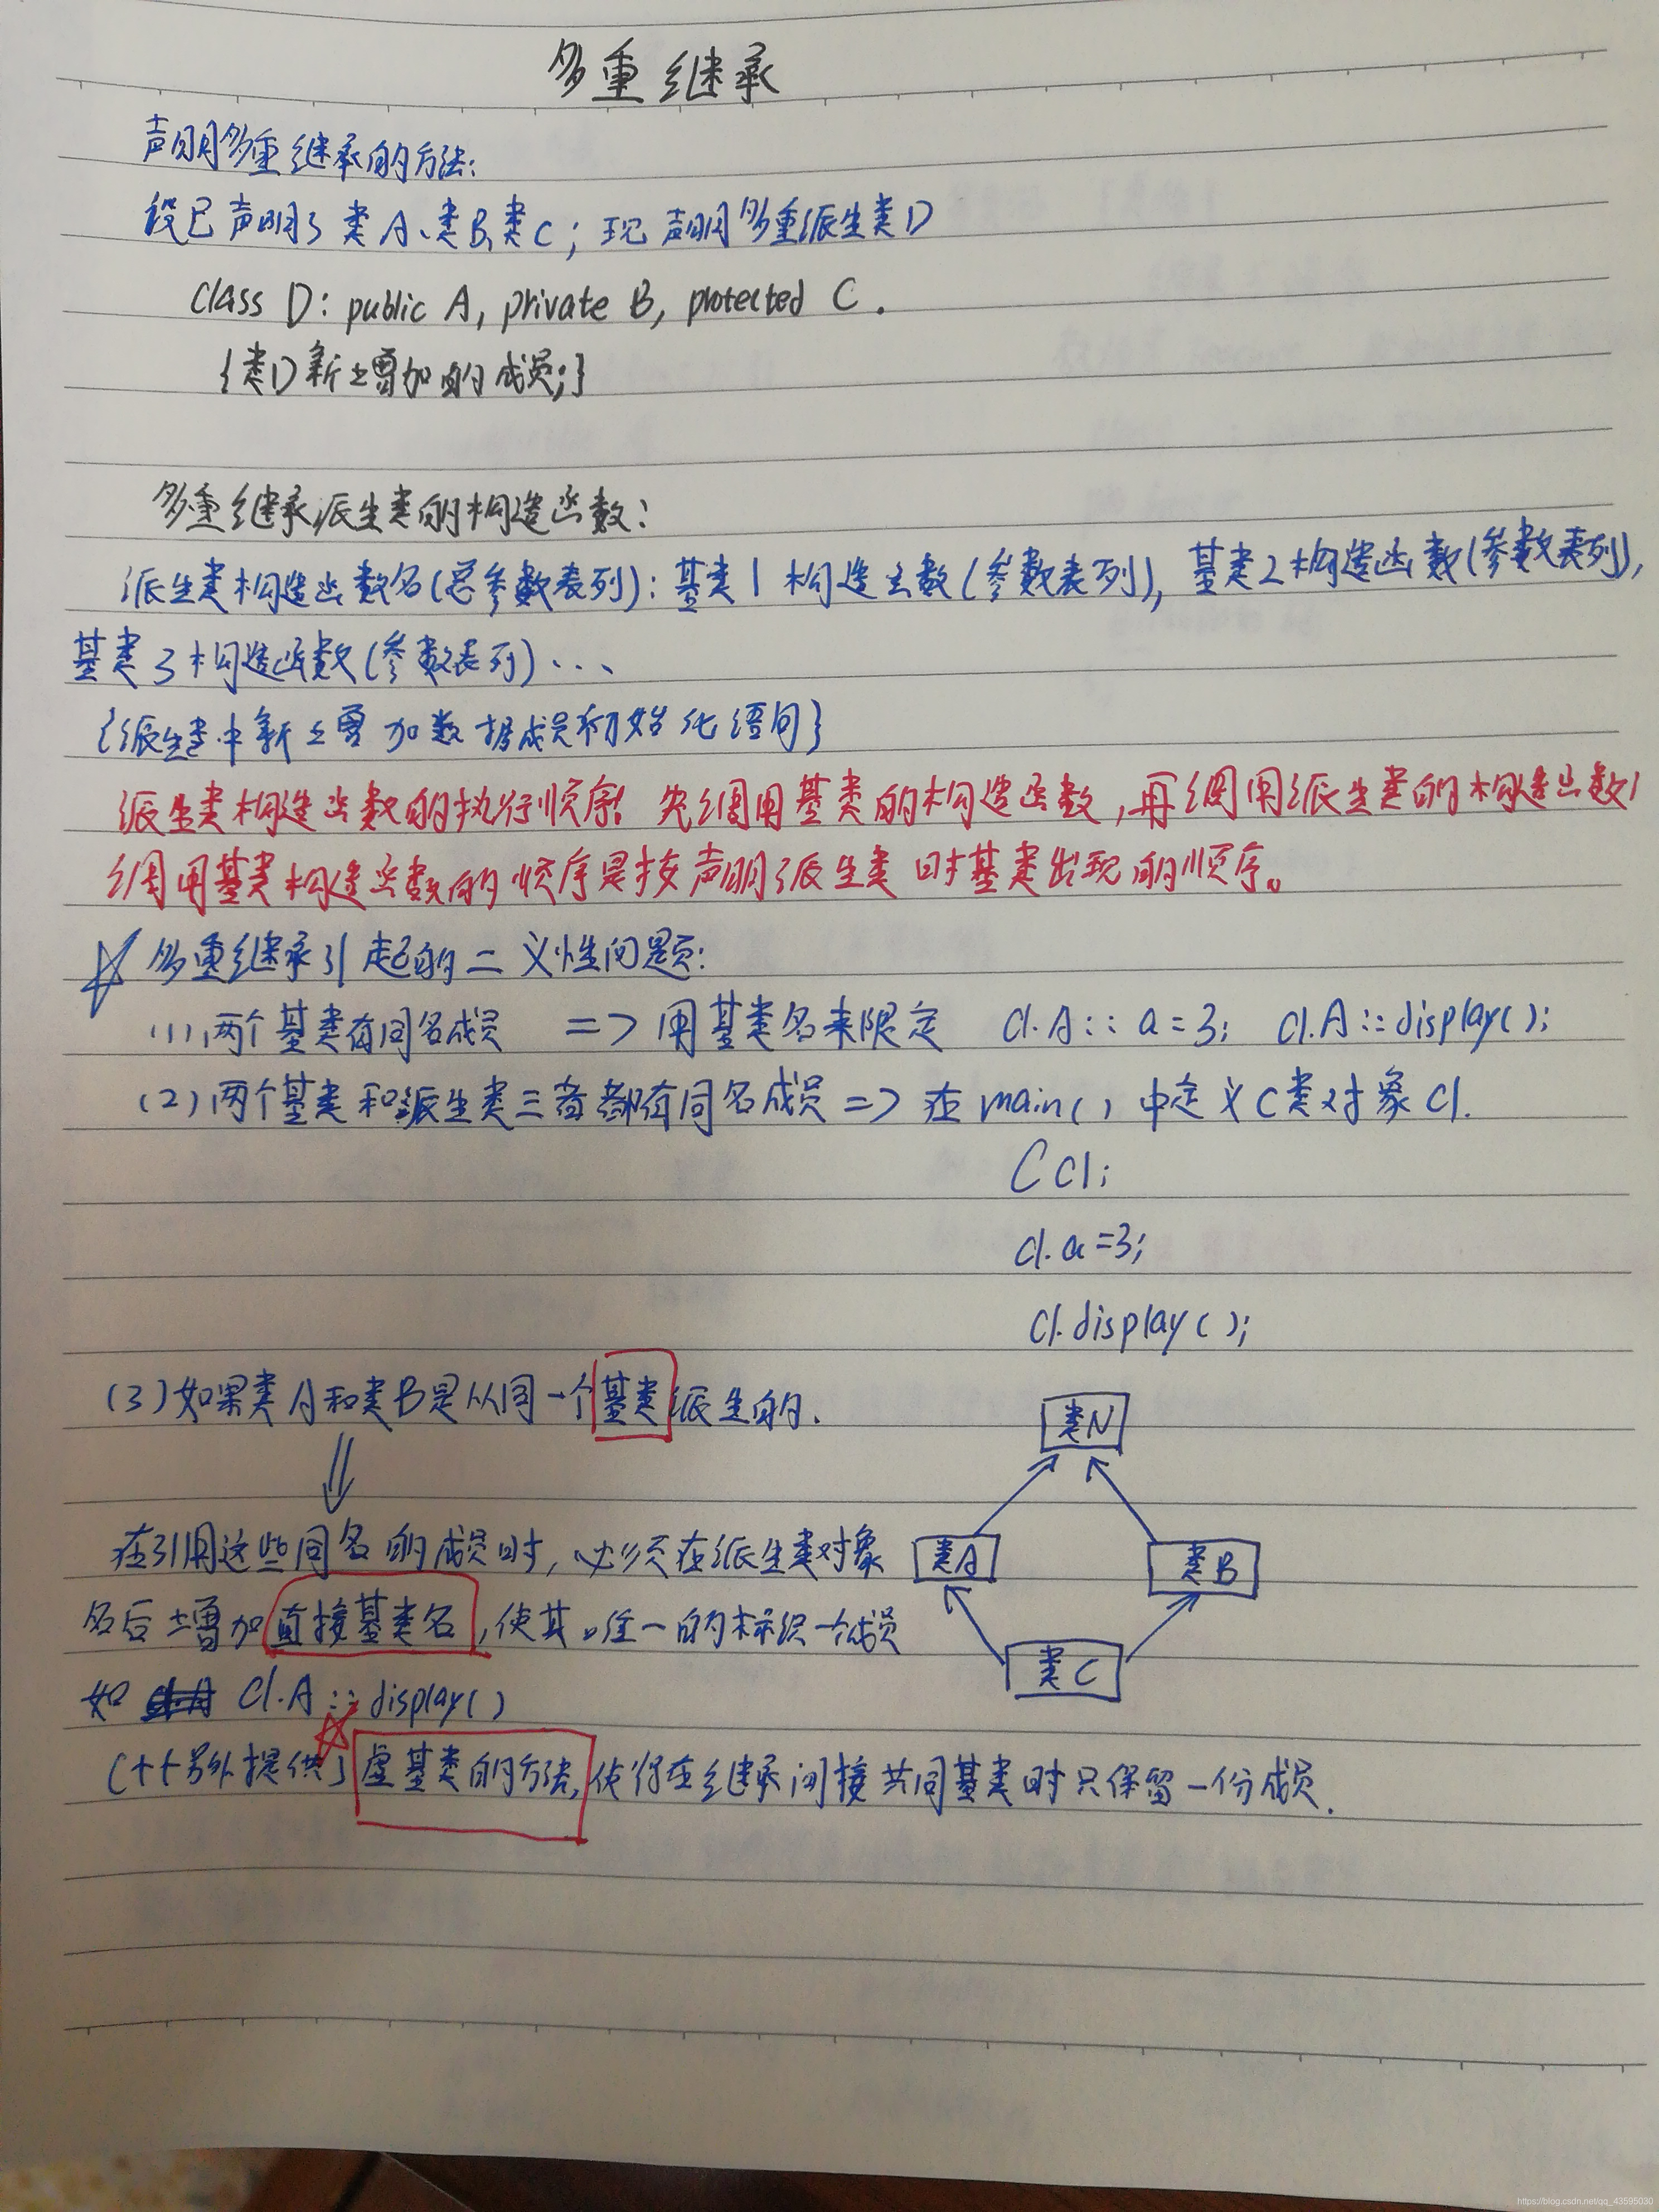 多重继承
声明多重继承的方法:
设已声明了类A、类B、类C; 现声明多重派生类D
class D: public A, private B, protected C.
{类D新增加的成员;}
多重继承派生类的构造函数:
派生类构造函数名(总参数表列): 基类1构造函数(参数表列), 基类2构造函数(参数表列),
基类3构造函数(参数表列)...
{派生类中新增加数据成员初始化语句}
派生类构造函数的执行顺序: 先调用基类的构造函数, 再调用派生类的构造函数;
调用基类构造函数的顺序是按声明派生类时基类出现的顺序。
☆ 多重继承引起的二义性问题:
(1)、两个基类有同名成员 => 用基类名来限定 c1.A::a=3; c1.A::display();
(2)两个基类和派生类三者都有同名成员 => 在main()中定义C类对象c1.
C c1;
c1.a=3;
c1.display();
(3)如果类A和类B是从同一个基类派生的.
类N
在引用这些同名的成员时, 必须在派生类对象
类A 类B
名后增加直接基类名, 使其唯一的标识一个成员
类C
如 c1.A::display()
C++另外提供了虚基类的方法, 使得在继承间接共同基类时只保留一份成员.
https://blog.csdn.net/qq_43595030